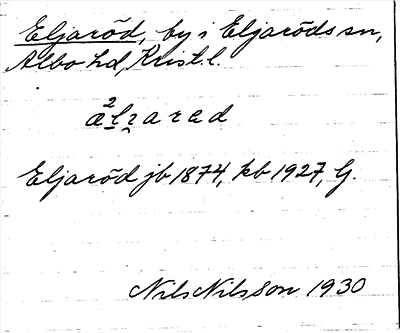 Eljaröd, by i Eljaröds sn,
Albo hd, Krist.l.
Eljaröd jb 1874, kb 1927, G.
Nils Nilsson 1930